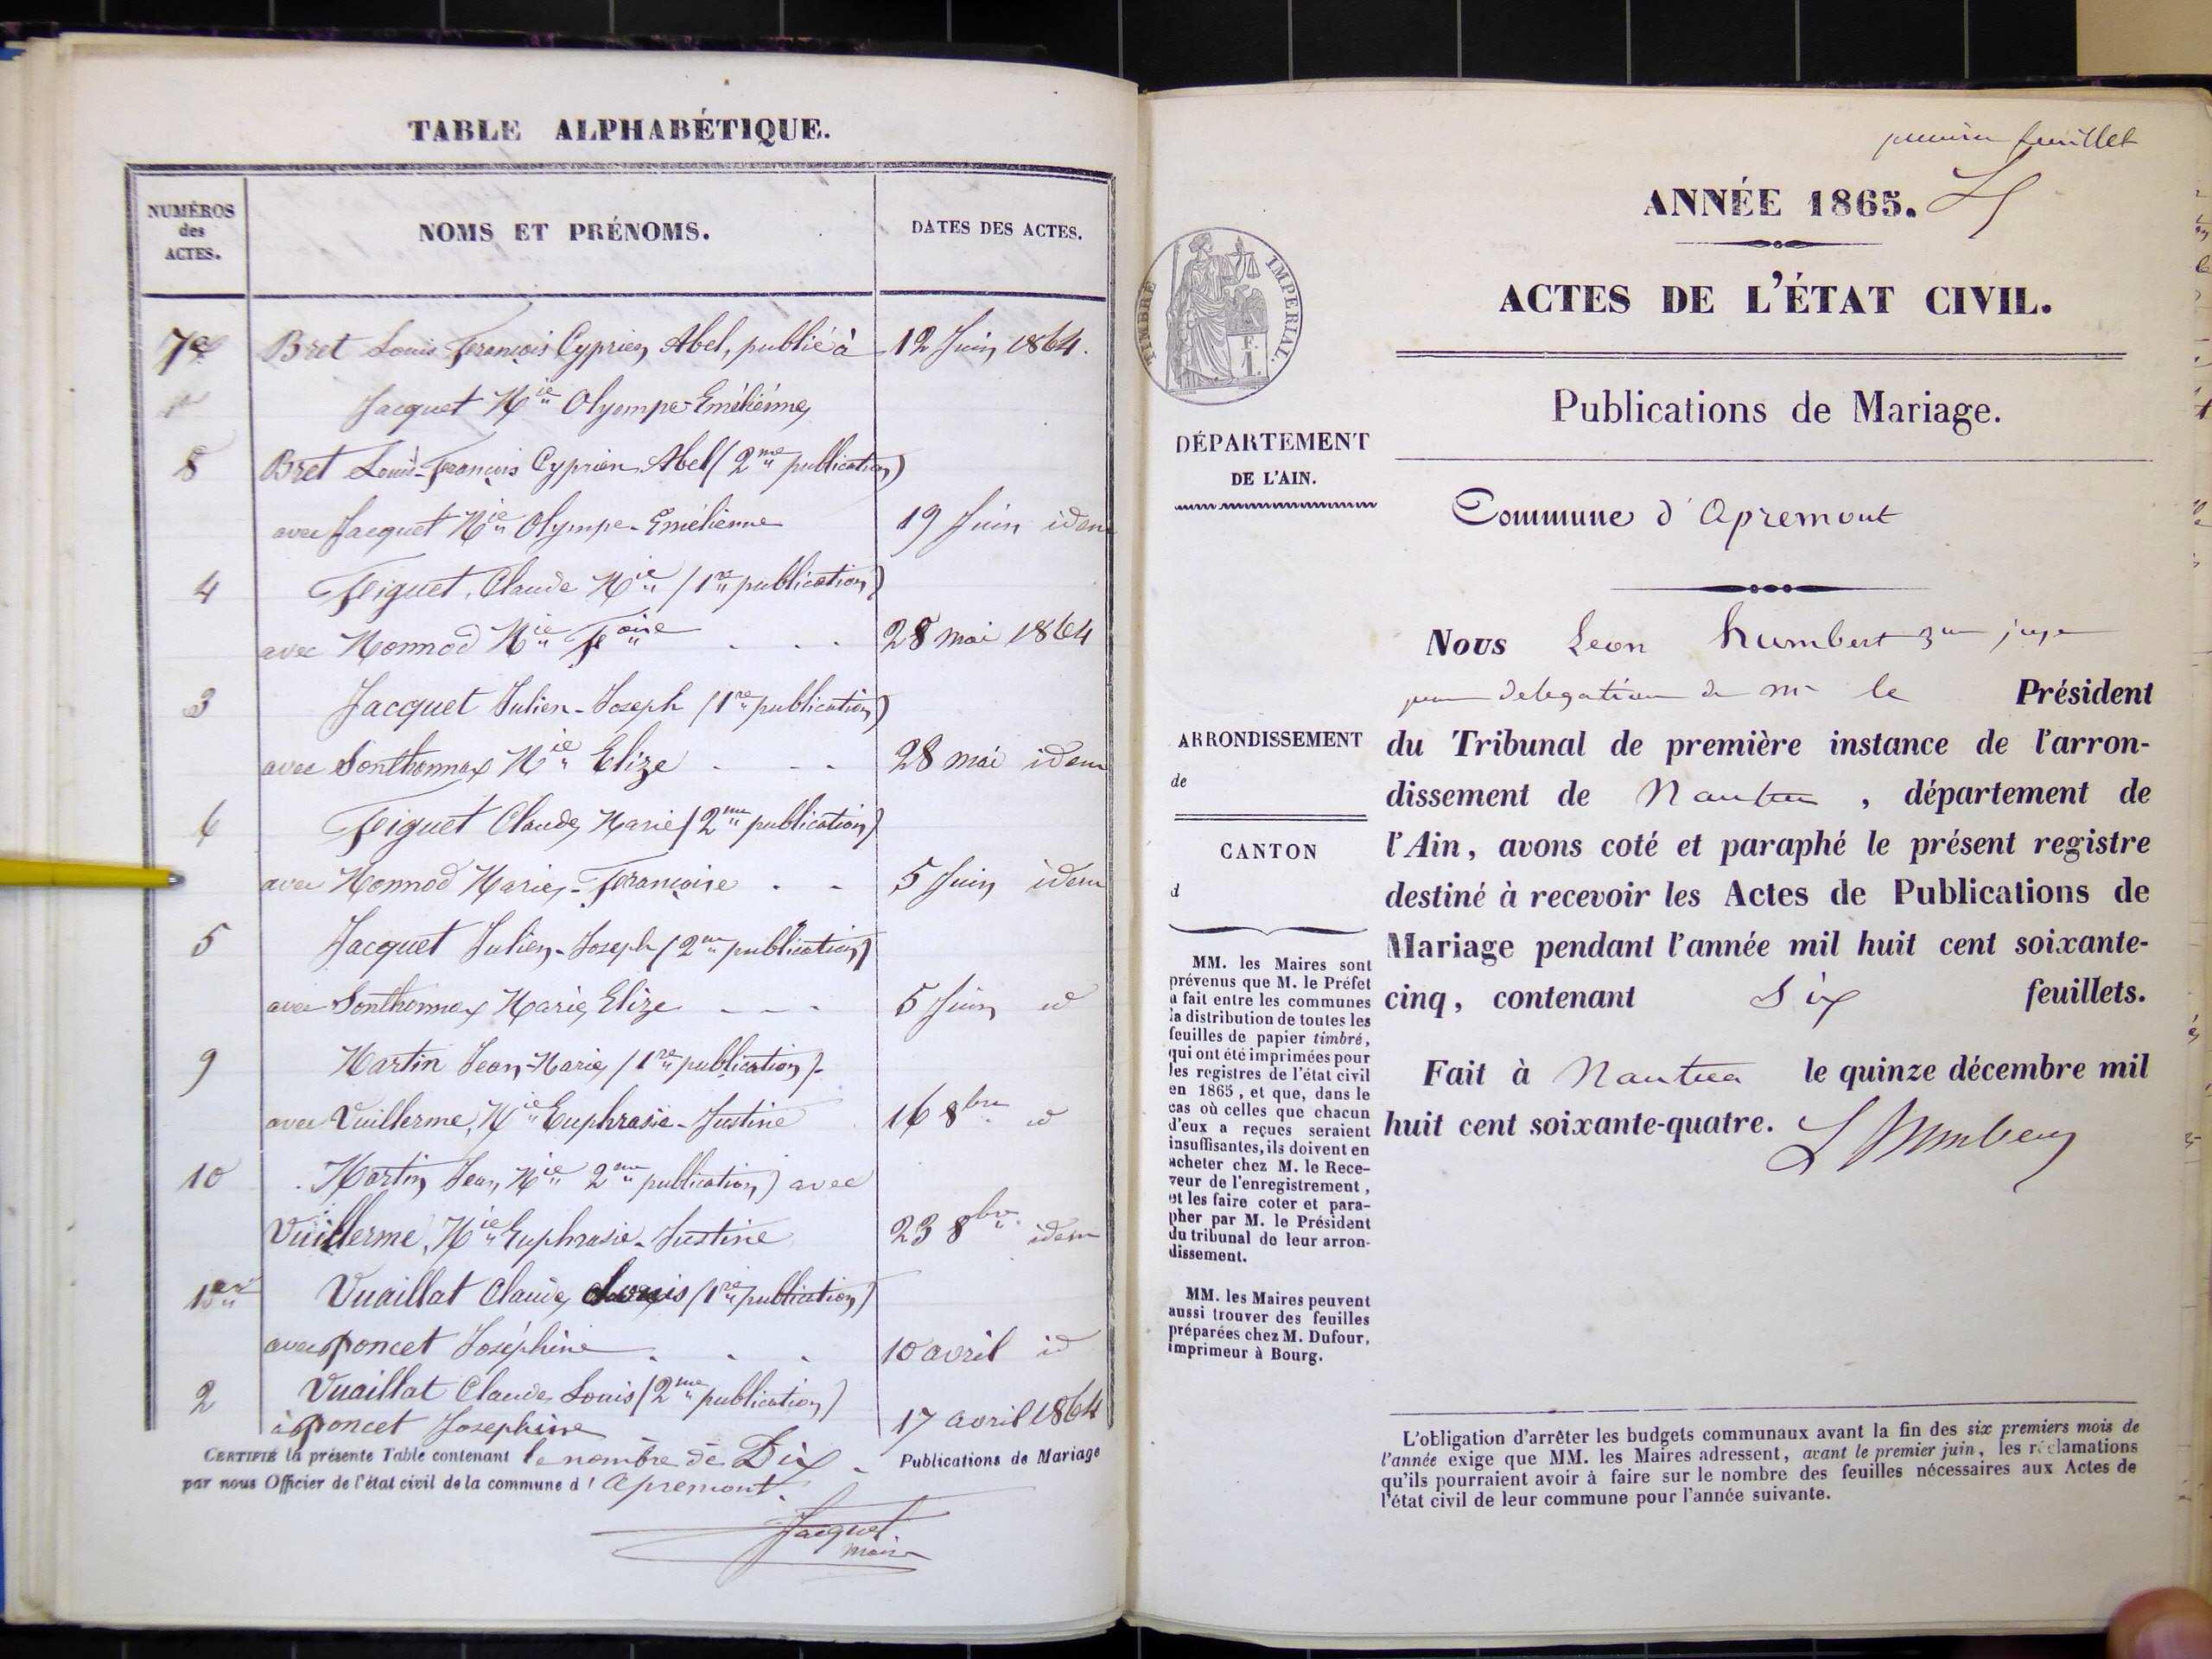 TABLE ALPHABÉTIQUE.
NUMÉROS des ACTES.
NOMS ET PRÉNOMS.
DATES DES ACTES.
7e Bret Louis François Cyprien Abel, publié à 12 Juin 1864.
Jacquet Mie Olyompe-Emélienne
8 Bret Louis-François Cyprien Abel (2me publication)
avec Jacquet Mie Olympe-Emélienne 19 Juin idem
4 Feiguet, Claude Mie (1re publication)
avec Monnod Mie Foise 28 mai 1864
3 Jacquet Julien-Joseph (1re publication)
avec Sonthonnax Mie Elize 28 mai idem
6 Feiguet Claude Marie (2me publication)
avec Monnod Marie-Françoise 5 Juin idem
5 Jacquet Julien-Joseph (2me publication)
avec Sonthonnax Marie Elize 5 Juin id
9 Martin Jean-Marie (1re publication).
avec Vuillerme, Mie Euphrasie-Justine 16 8bre id
10 Martin Jean Mie 2me publication) avec
Vuillerme, Mie Euphrasie-Justine 23 8bre idem
1er Vuaillat Claude Louis (1re publication)
avec Poncet Joséphine 10 avril id
2 Vuaillat Claude Louis (2me publication)
à Poncet Josephine 17 avril 1864
CERTIFIÉ la présente Table contenant le nombre de Dix Publications de Mariage
par nous Officier de l'état civil de la commune d'Apremont.
Jacquet
maire
premier feuillet
ANNÉE 1865.
TIMBRE IMPÉRIAL.
F.
1.
ACTES DE L'ÉTAT CIVIL.
Publications de Mariage.
DÉPARTEMENT
DE L'AIN.
Commune d'Apremont
Nous Leon humbert 3me juge
par delegation de mr le Président
du Tribunal de première instance de l'arron-
dissement de Nantua, département de
l'Ain, avons coté et paraphé le présent registre
destiné à recevoir les Actes de Publications de
Mariage pendant l'année mil huit cent soixante-
cinq, contenant Six feuillets.
Fait à Nantua le quinze décembre mil
huit cent soixante-quatre.
L Humbert
ARRONDISSEMENT
de
CANTON
d
MM. les Maires sont
prévenus que M. le Préfet
a fait entre les communes
la distribution de toutes les
feuilles de papier timbré,
qui ont été imprimées pour
les registres de l'état civil
en 1865, et que, dans le
cas où celles que chacun
d'eux a reçues seraient
insuffisantes, ils doivent en
acheter chez M. le Rece-
veur de l'enregistrement,
et les faire coter et para-
pher par M. le Président
du tribunal de leur arron-
dissement.
MM. les Maires peuvent
aussi trouver des feuilles
préparées chez M. Dufour,
imprimeur à Bourg.
L'obligation d'arrêter les budgets communaux avant la fin des six premiers mois de
l'année exige que MM. les Maires adressent, avant le premier juin, les réclamations
qu'ils pourraient avoir à faire sur le nombre des feuilles nécessaires aux Actes de
l'état civil de leur commune pour l'année suivante.